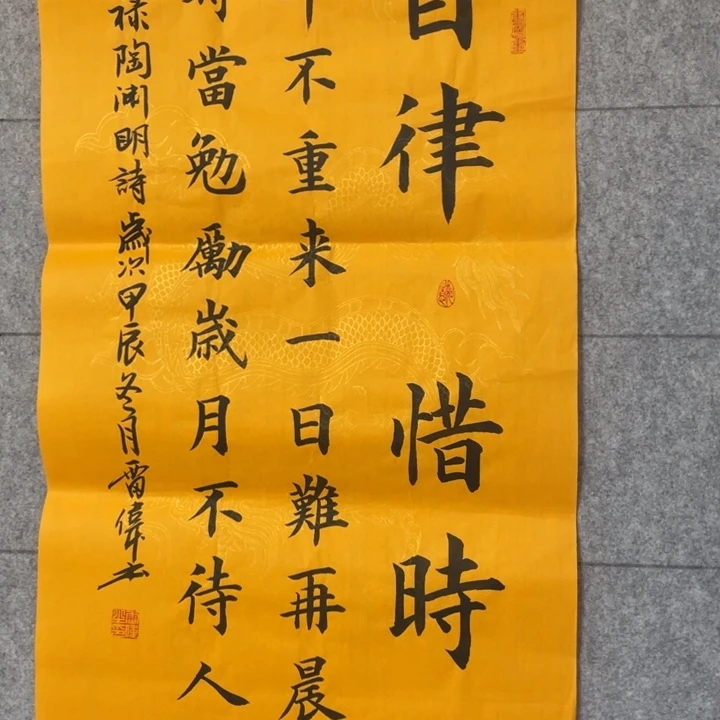 自律 惜時
年不重来一日難再晨
時當勉勵歳月不待人
禄陶渊明詩歲次甲辰冬月雷偉书